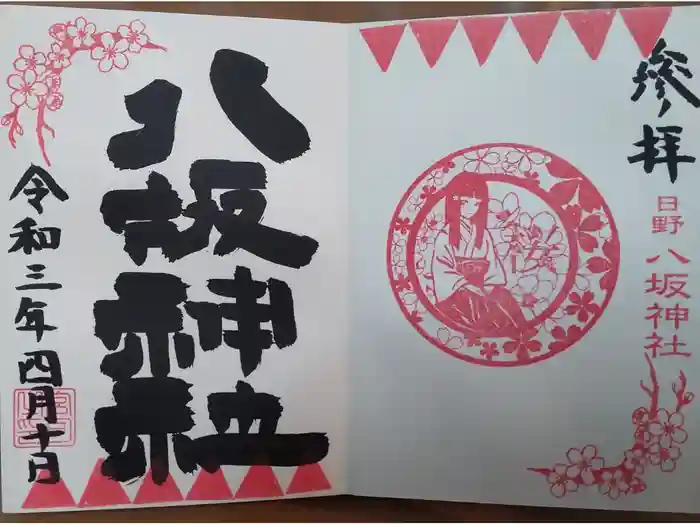 参拝
日野八坂神社
八坂神社
令和三年四月十日